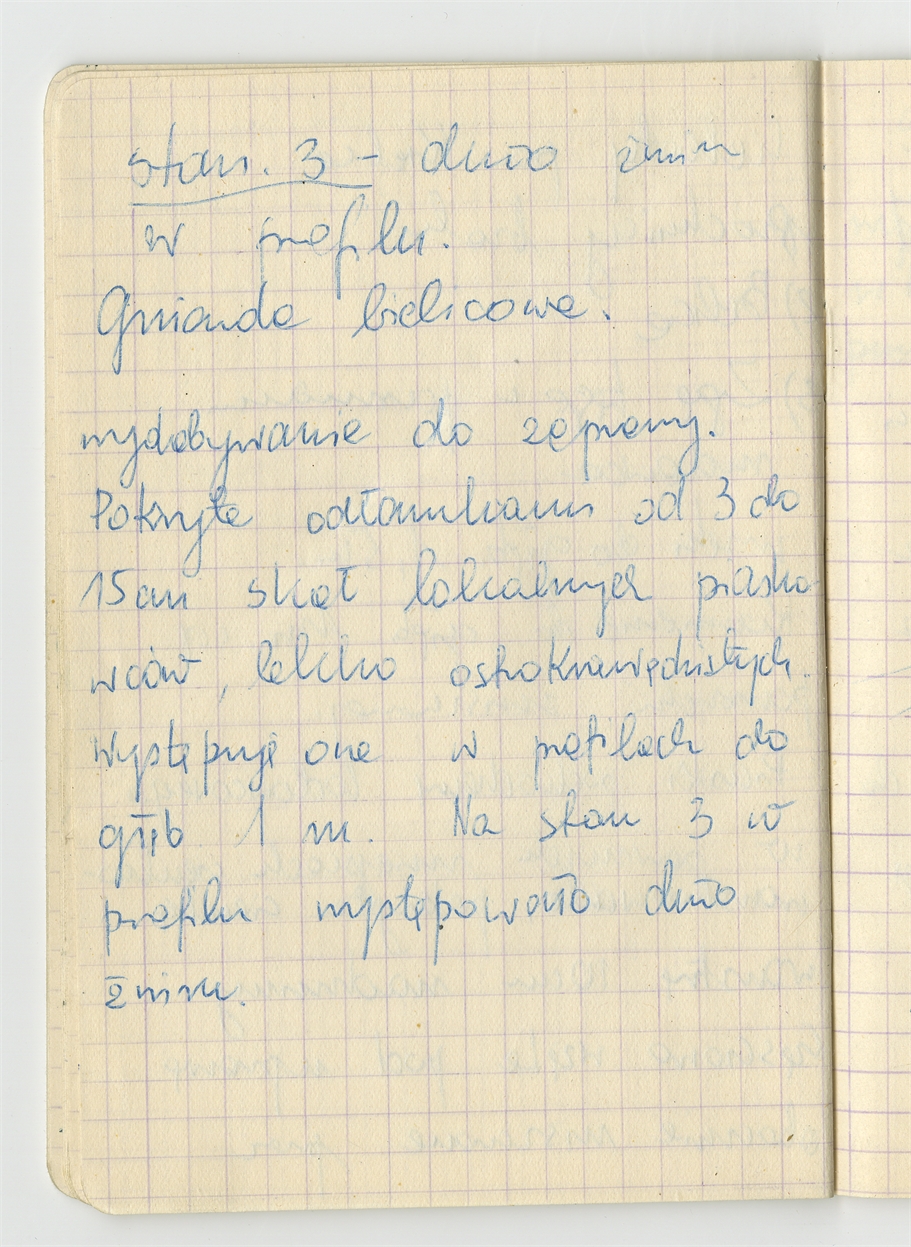 stan. 3 - dużo żwiru
w profilu.
Gniazda bielicowe.
wydobywanie do zaprawy.
Pokryte odłamkami od 3 do
15 cm skał lokalnych piasko
wców, lekko ostrokrawędzistych.
występują one w profilach do
głęb 1 m. Na stan 3 w
profilu występowało dużo
żwiru.